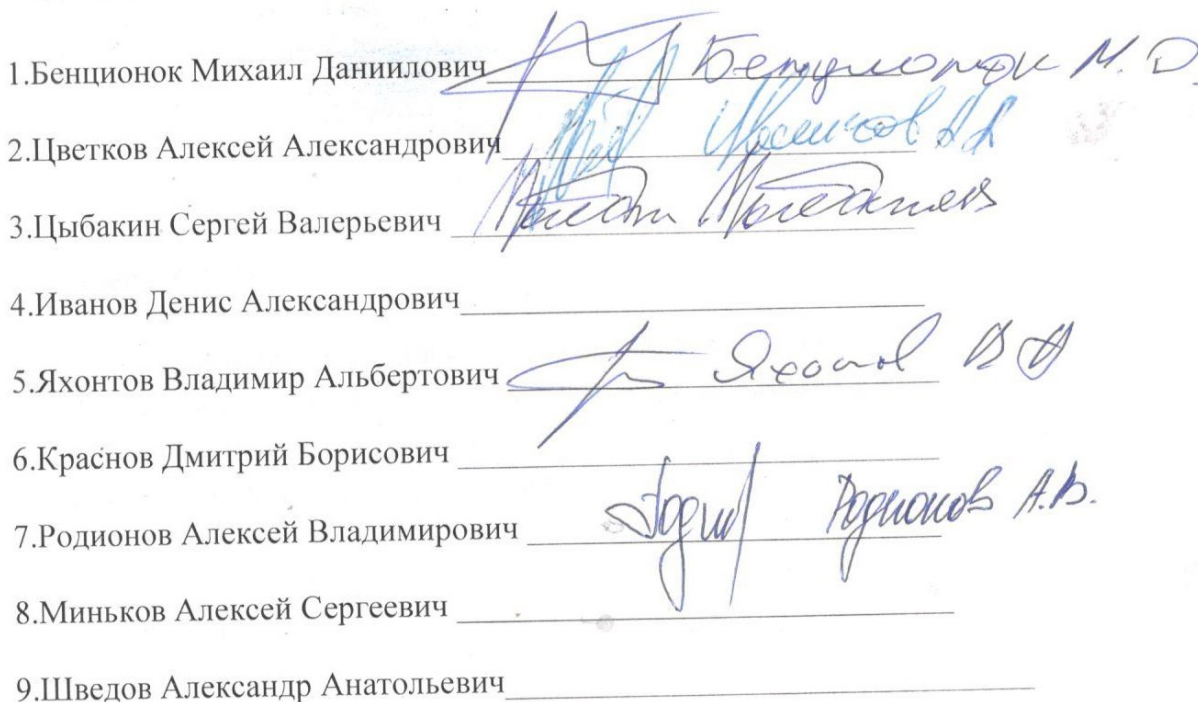 1.Бенционок Михаил Даниилович Бенционок М. D
2.Цветков Алексей Александрович Цветков АА
3.Цыбакин Сергей Валерьевич
4.Иванов Денис Александрович
5.Яхонтов Владимир Альбертович Яхонтов В А
6.Краснов Дмитрий Борисович
7.Родионов Алексей Владимирович Родионов А.В.
8.Миньков Алексей Сергеевич
9.Шведов Александр Анатольевич